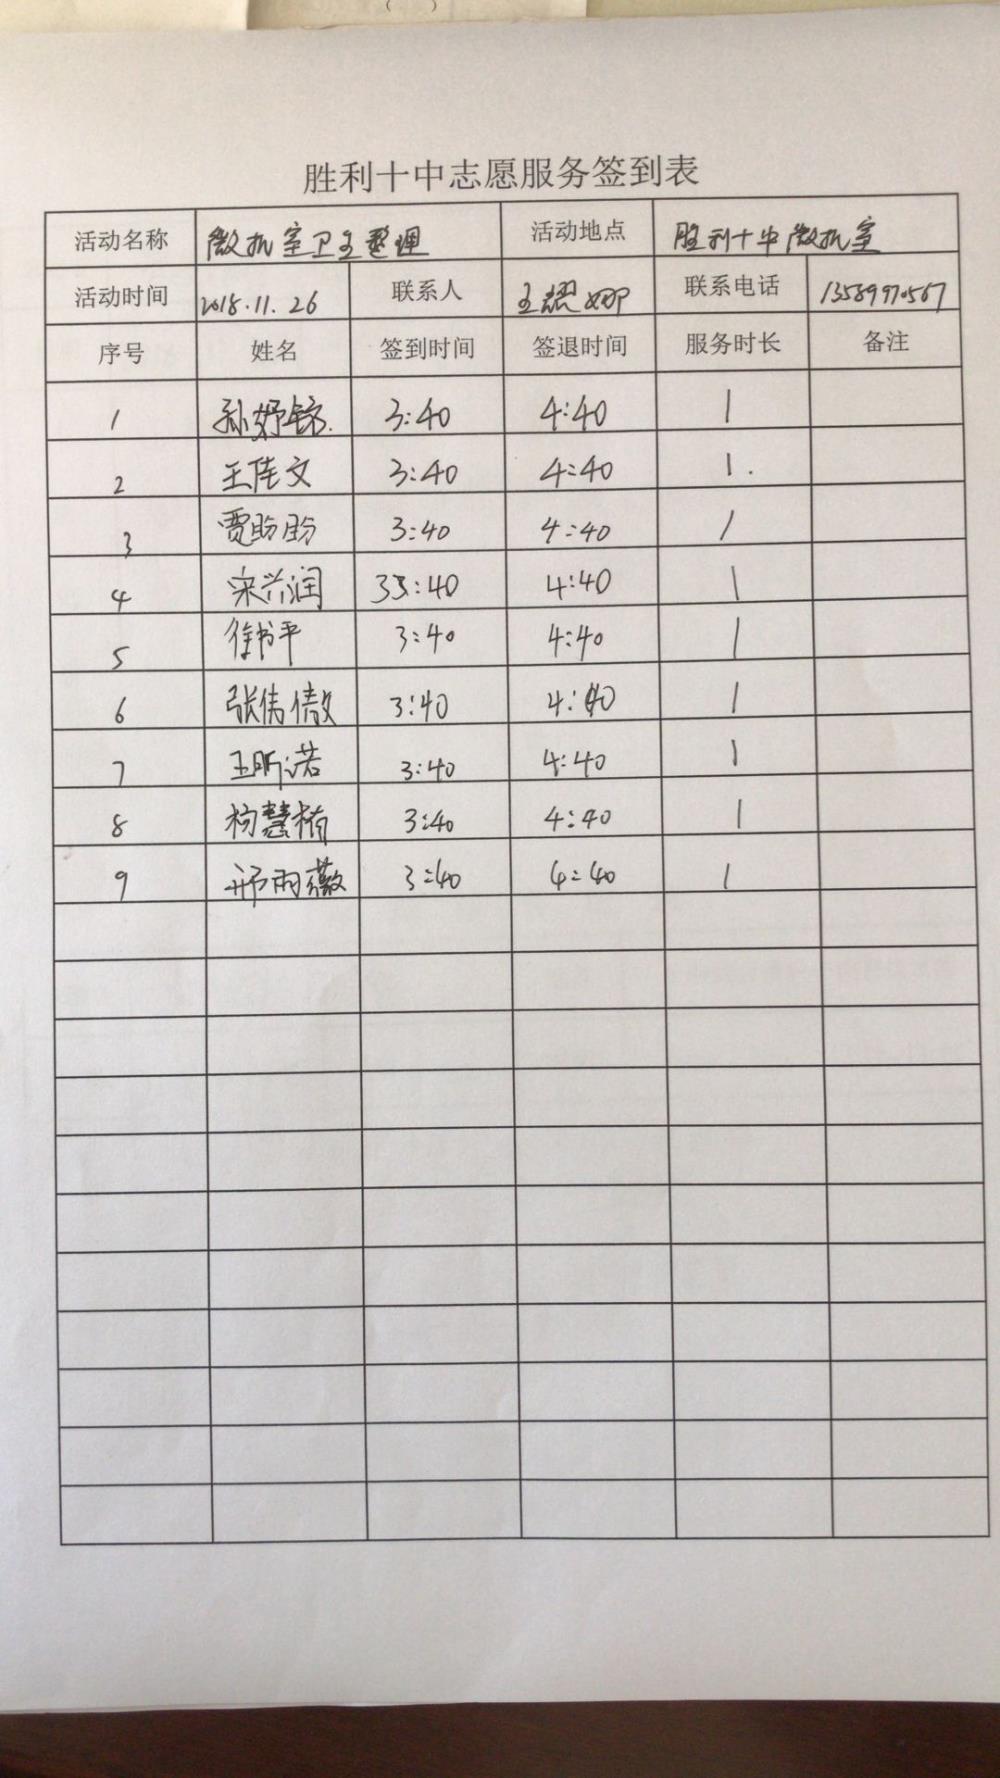 胜利十中志愿服务签到表
活动名称 微机室卫生整理 活动地点 胜利十中微机室
活动时间 2018.11.26 联系人 王耀娜 联系电话 13589970567
序号 姓名 签到时间 签退时间 服务时长 备注
1 孙妤锦 3:40 4:40 1
2 王佳文 3:40 4:40 1.
3 贾盼盼 3:40 4:40 1
4 宋兴润 33:40 4:40 1
5 徐书平 3:40 4:40 1
6 张伟傲 3:40 4:40 1
7 王昕诺 3:40 4:40 1
8 杨慧楠 3:40 4:40 1
9 邢雨薇 3:40 4:40 1